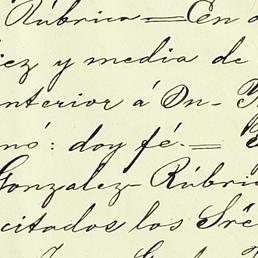 Rúbrica = En
iez y media de
nterior á Dn.
nó: doy fé. =
Gonzalez - Rúbri
citados los Srē